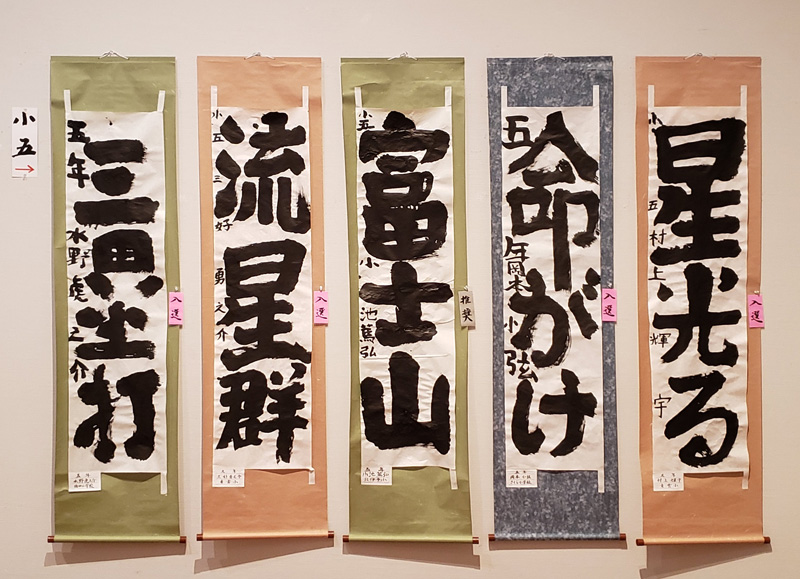 小五
→
三塁打
五年 水野虎之介
入選
流星群
小五 三好勇之介
入選
富士山
小五 小池篤弘
推奨
命がけ
五年 岡本小弦
入選
星光る
小五 村上輝宇
入選